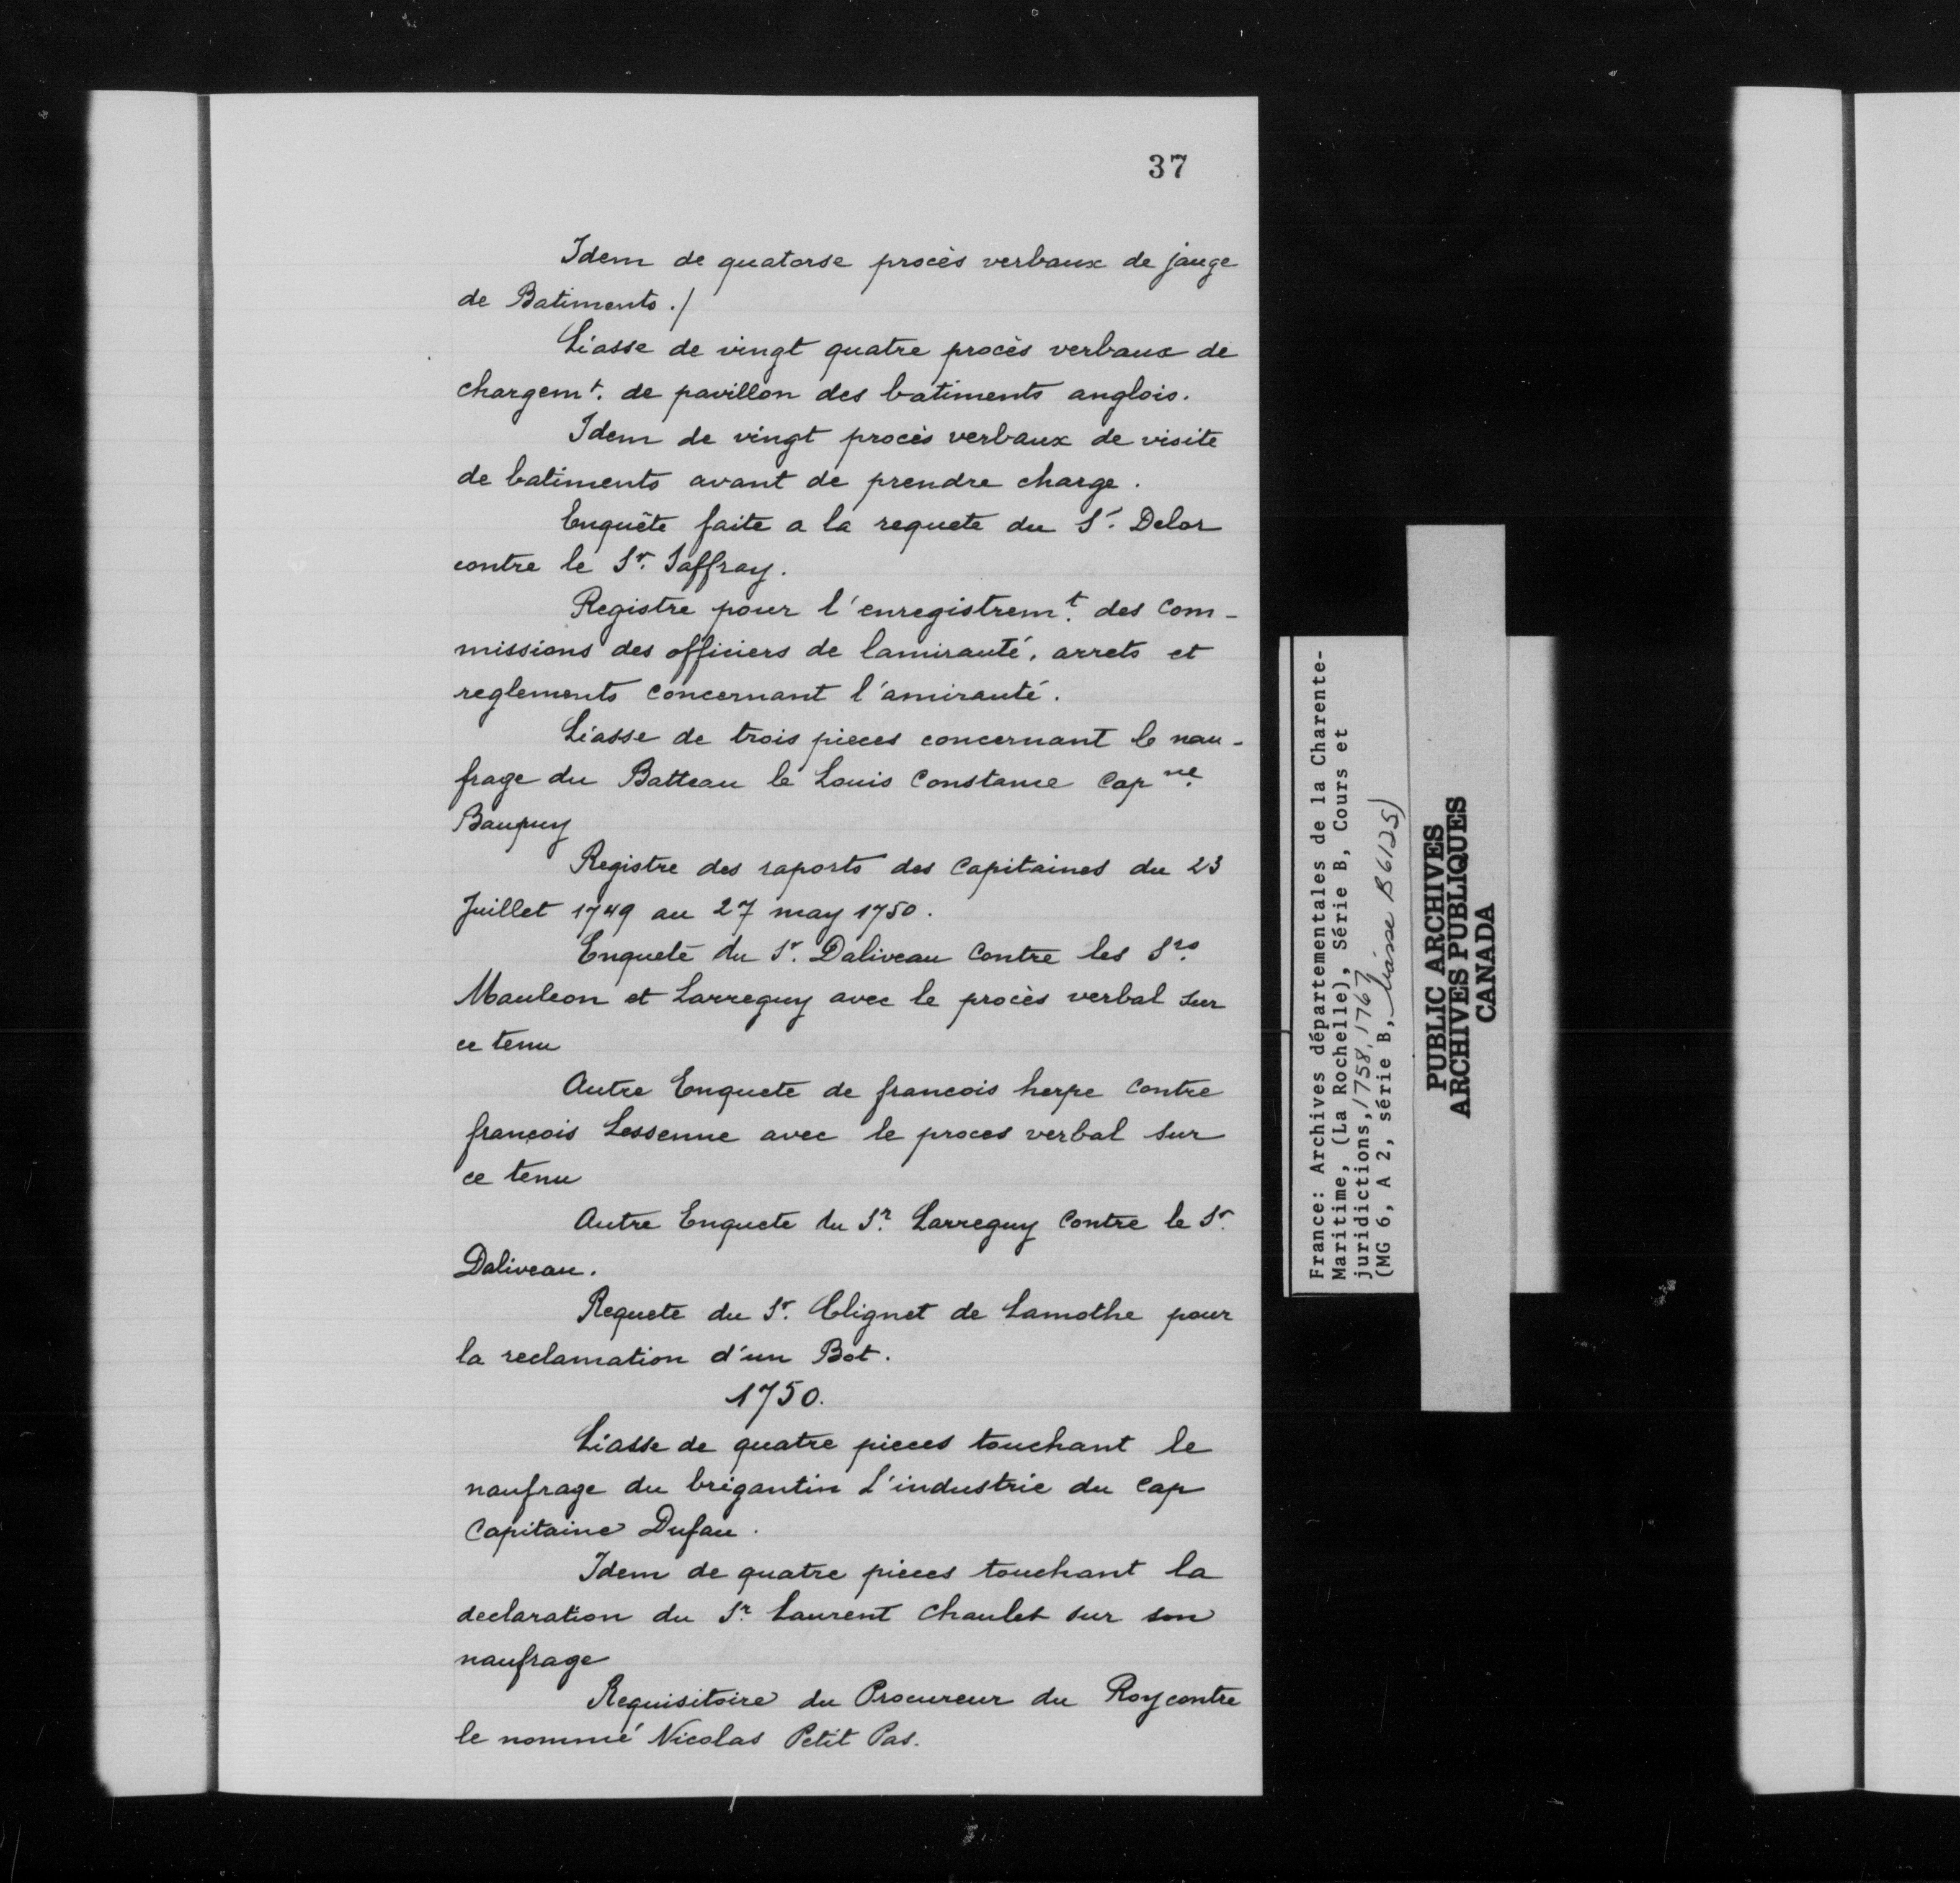 37
Idem de quatorse procès verbaux de jauge
de Batiments ./
Liasse de vingt quatre procès verbaux de
chargemt. de pavillon des batiments anglois.
Idem de vingt procès verbaux de visite
de batiments avant de prendre charge.
Enquête faite a la requete du Sr. Delor
contre le Sr. Jaffray.
Registre pour l'enregistremt. des Com-
missions des officiers de lamirauté, arrets et
reglements Concernant l'amirauté.
Liasse de trois pieces concernant le nau-
frage du Batteau le Louis Constance Capne.
Baupuy
Registre des raports des Capitaines du 23
Juillet 1749 au 27 may 1750.
Enquete du Sr. Daliveau Contre les Srs.
Mauleon et Larreguy avec le procès verbal sur
ce tenu
Autre Enquete de francois herpe Contre
françois Lessenne avec le proces verbal sur
ce tenu
Autre Enquete du Sr. Larreguy Contre le Sr.
Daliveau.
Requete du Sr. Clignet de Lamothe pour
la reclamation d'un Bot.
1750.
Liasse de quatre pieces touchant le
naufrage du brigantin L'industrie du Cap
Capitaine Dufau.
Idem de quatre pieces touchant la
declaration du Sr. Laurent Chaulet sur son
naufrage
Requisitoire du Procureur du Roy contre
le nommé Nicolas Petit Pas.
France: Archives départementales de la Charente-
Maritime, (La Rochelle), Série B, Cours et
juridictions, 1758, 1767
(MG 6, A 2, série B, liasse B6125)
PUBLIC ARCHIVES
ARCHIVES PUBLIQUES
CANADA